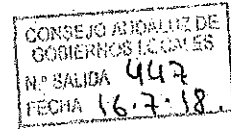 CONSEJO ANDALUZ DE
GOBIERNOS LOCALES
N.º SALIDA 447
FECHA 16.7.18.